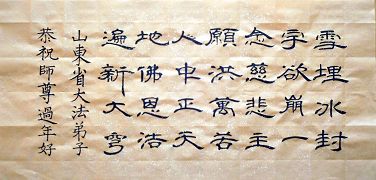 雪埋冰封
宇欲崩一
念慈悲主
願洪萬苦
人中正天
地佛恩浩
遍新大穹
山東省大法弟子
恭祝師尊過年好